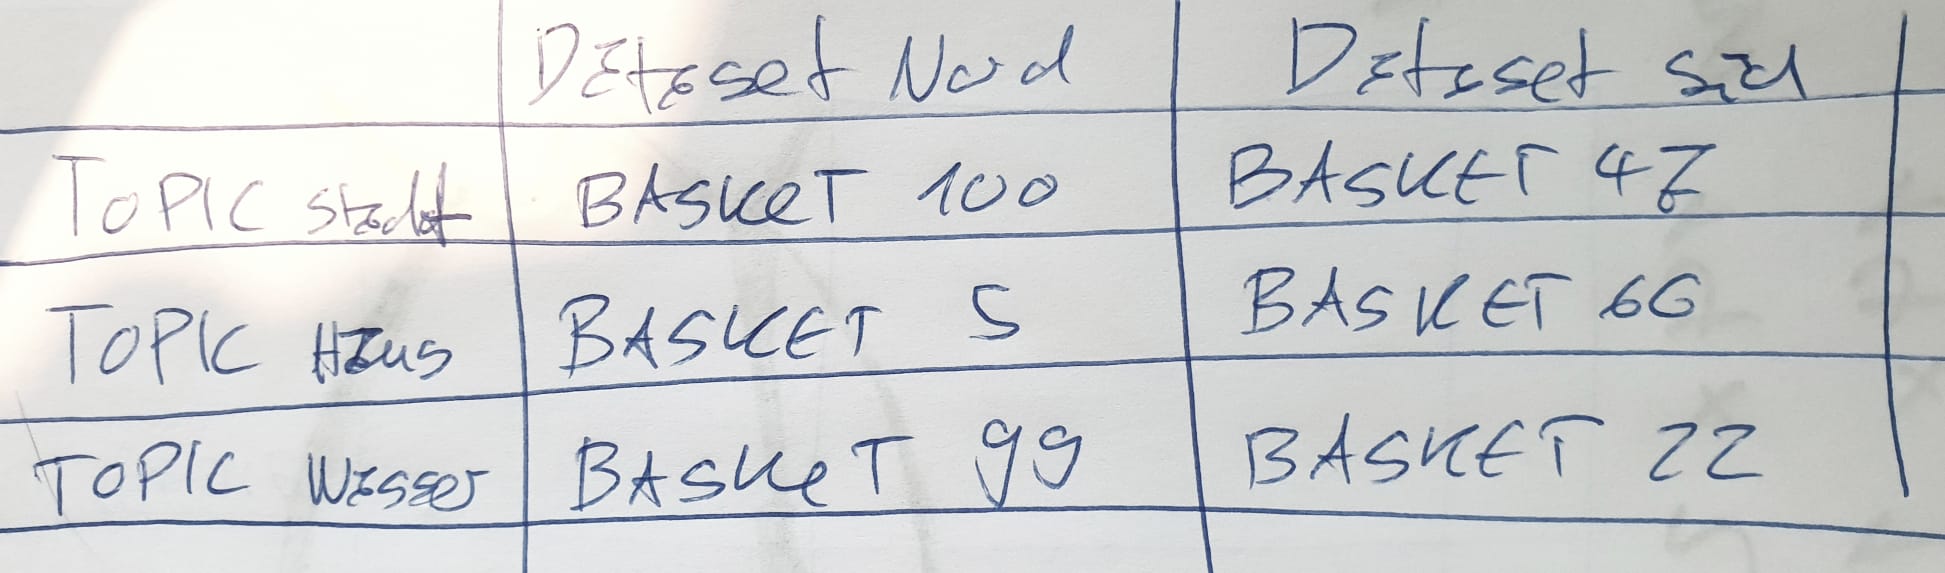 Dataset Nord Dataset Süd
TOPIC Stadt BASKET 100 BASKET 47
TOPIC Haus BASKET 5 BASKET 66
TOPIC Wasser BASKET 99 BASKET 22